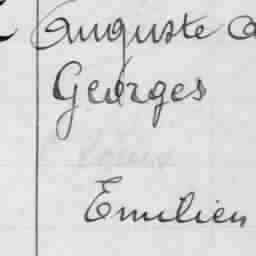 Auguste
Georges
Emilien